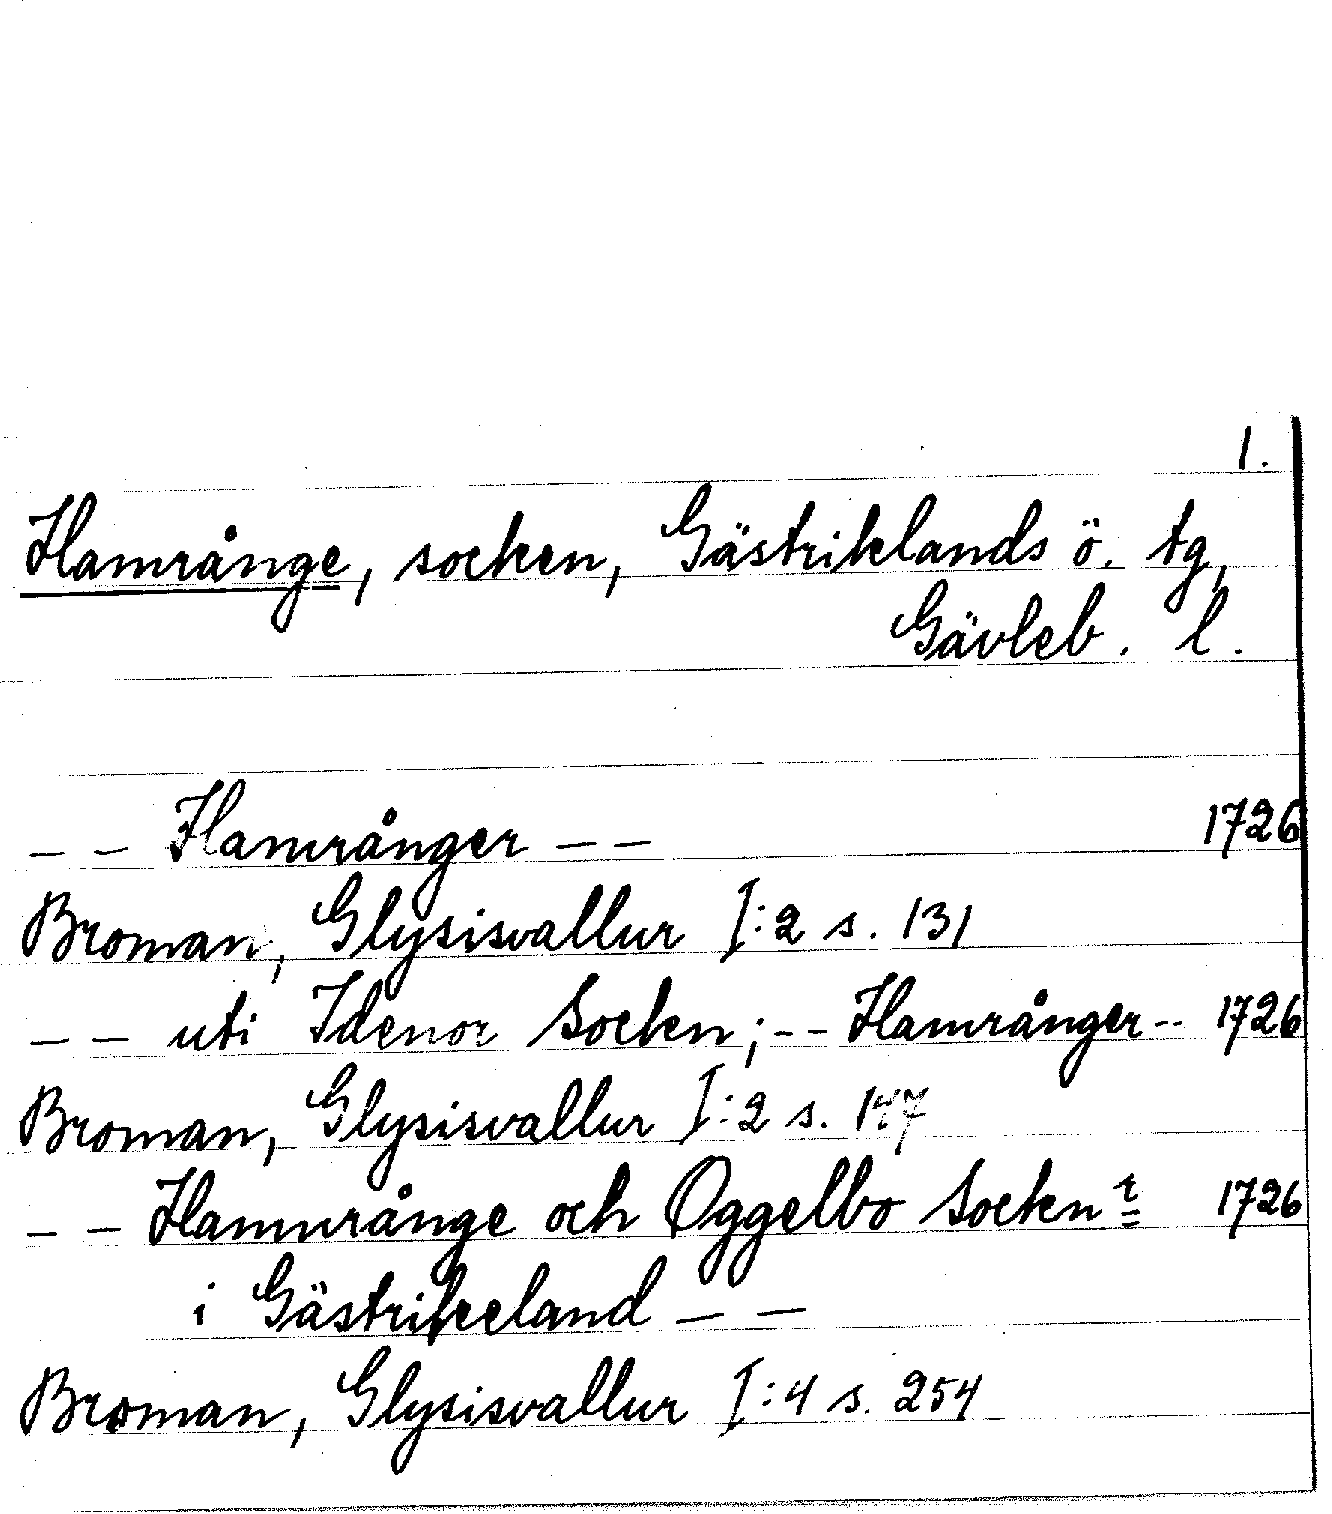 1.
Hamrånge, socken, Gästriklands ö. tg,
Gävleb. l.
– – Hamrånger – – 1726
Broman, Glysisvallur I:2 s. 131
– – uti Idenor Socken; -- Hamrånger -- 1726
Broman, Glysisvallur I:2 s. 147
– – Hamnrånge och Oggelbo Socken r 1726
i Gästrikeland – –
Broman, Glysisvallur I:4 s. 254